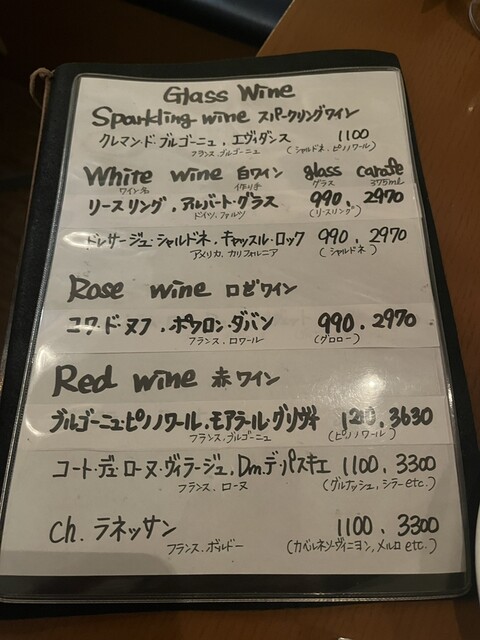 Glass Wine
Sparkling wine スパークリングワイン
クレマン・ド・ブルゴーニュ . エヴィダンス 1100
フランス.ブルゴーニュ (シャルドネ.ピノノワール)
White wine 白ワイン glass carafe
ワイン名 作り手 グラス 375ml
リースリング . アルバート・グラス 990 . 2970
ドイツ.ファルツ (リースリング)
ドレサージュ・シャルドネ . キャッスル・ロック 990 . 2970
アメリカ.カリフォルニア (シャルドネ)
Rose wine ロゼワイン
コワ・ド・ヌフ . ポウロン・ダバン 990 . 2970
フランス.ロワール (グロロー)
Red wine 赤ワイン
ブルゴーニュ・ピノノワール . モアラール・グリヴォ 1210 . 3630
フランス.ブルゴーニュ (ピノノワール)
コート・デュ・ローヌ・ヴィラージュ . Dm.デ・パスキエ 1100 . 3300
フランス.ローヌ (グルナッシュ,シラー etc.)
Ch. ラネッサン 1100 . 3300
フランス.ボルドー (カベルネ・ソーヴィニヨン,メルロ etc.)